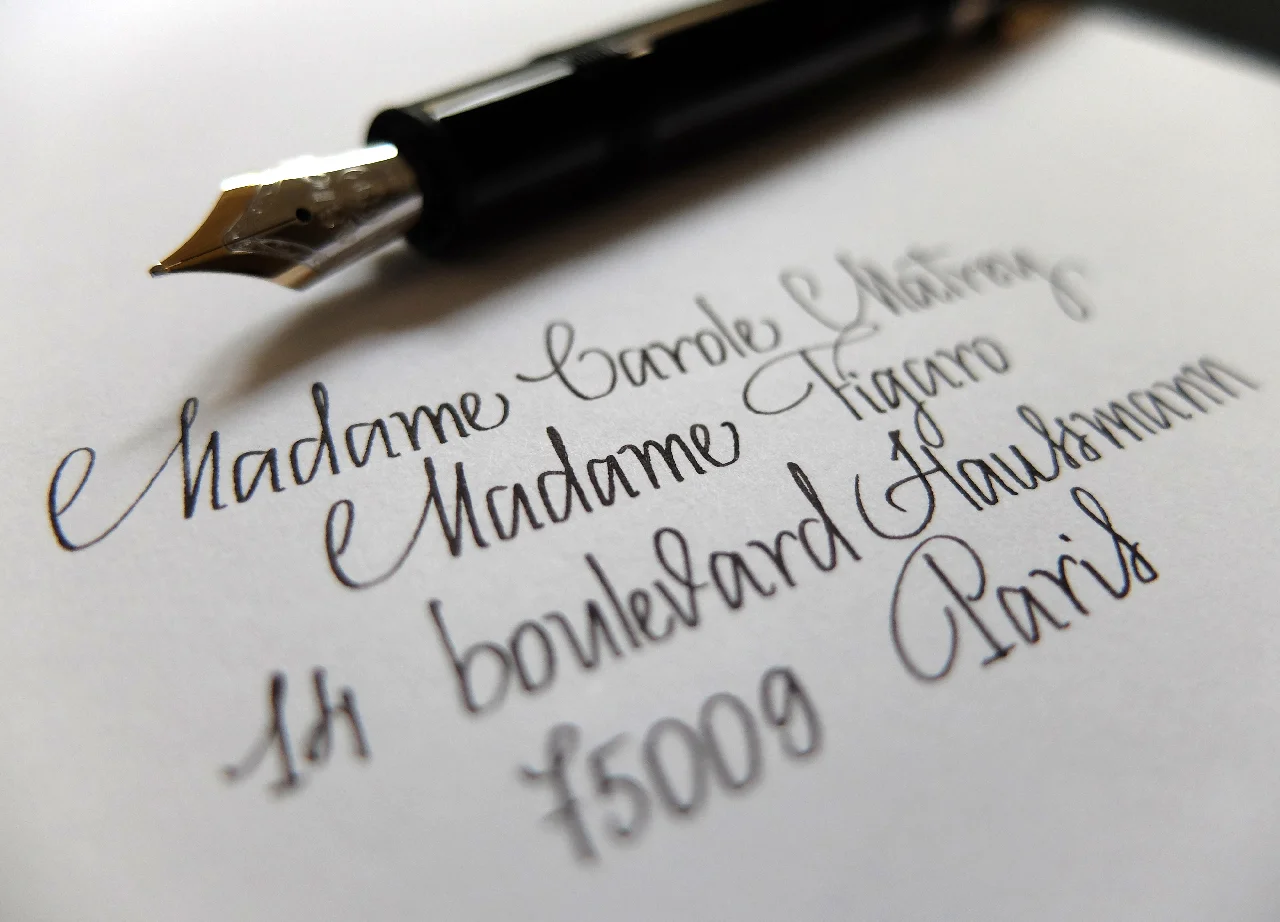 Madame Carole Matroy
Madame Figaro
14 boulevard Haussmann
75009 Paris